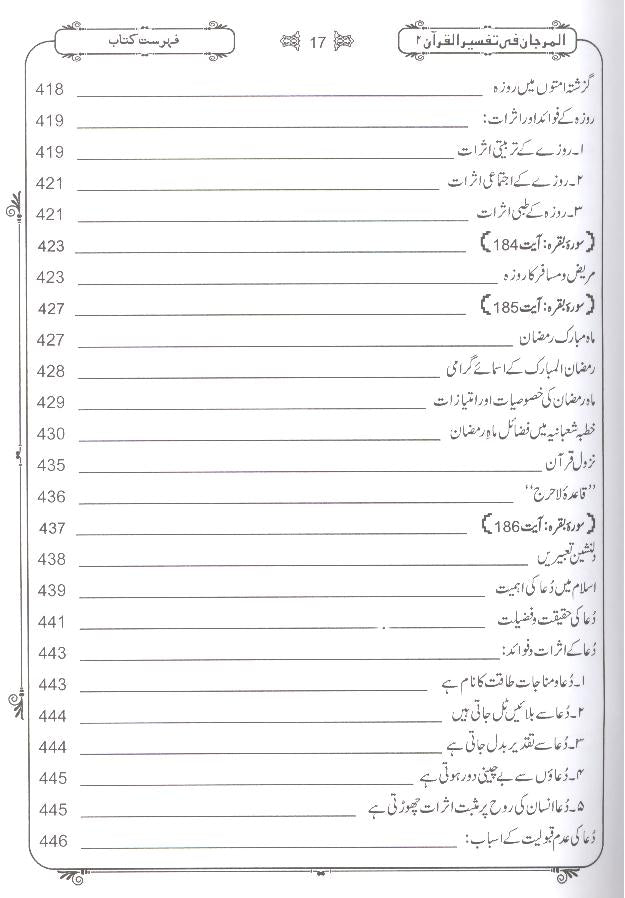 المرجان فی تفسیر القرآن ۲ 17 فہرست کتاب
گزشتہ امتوں میں روزہ 418
روزہ کے فوائد اور اثرات: 419
۱۔ روزے کے تربیتی اثرات 419
۲۔ روزے کے اجتماعی اثرات 421
۳۔ روزہ کے طبی اثرات 421
﴿سورۂ بقرہ: آیت 184﴾ 423
مریض و مسافر کا روزہ 423
﴿سورۂ بقرہ: آیت 185﴾ 427
ماہ مبارک رمضان 427
رمضان المبارک کے اسمائے گرامی 428
ماہ رمضان کی خصوصیات اور امتیازات 429
خطبہ شعبانیہ میں فضائل ماہِ رمضان 430
نزول قرآن 435
’’قاعدۂ لاحرج‘‘ 436
﴿سورۂ بقرہ: آیت 186﴾ 437
دلنشین تعبیریں 438
اسلام میں دُعا کی اہمیت 439
دُعا کی حقیقت و فضیلت 441
دُعا کے اثرات و فوائد: 443
۱۔ دُعا و مناجات طاقت کا نام ہے 443
۲۔ دُعا سے بلائیں ٹل جاتی ہیں 444
۳۔ دُعا سے تقدیر بدل جاتی ہے 444
۴۔ دُعاؤں سے بے چینی دور ہوتی ہے 445
۵۔ دُعا انسان کی روح پر مثبت اثرات چھوڑتی ہے 445
دُعا کی عدم قبولیت کے اسباب: 446